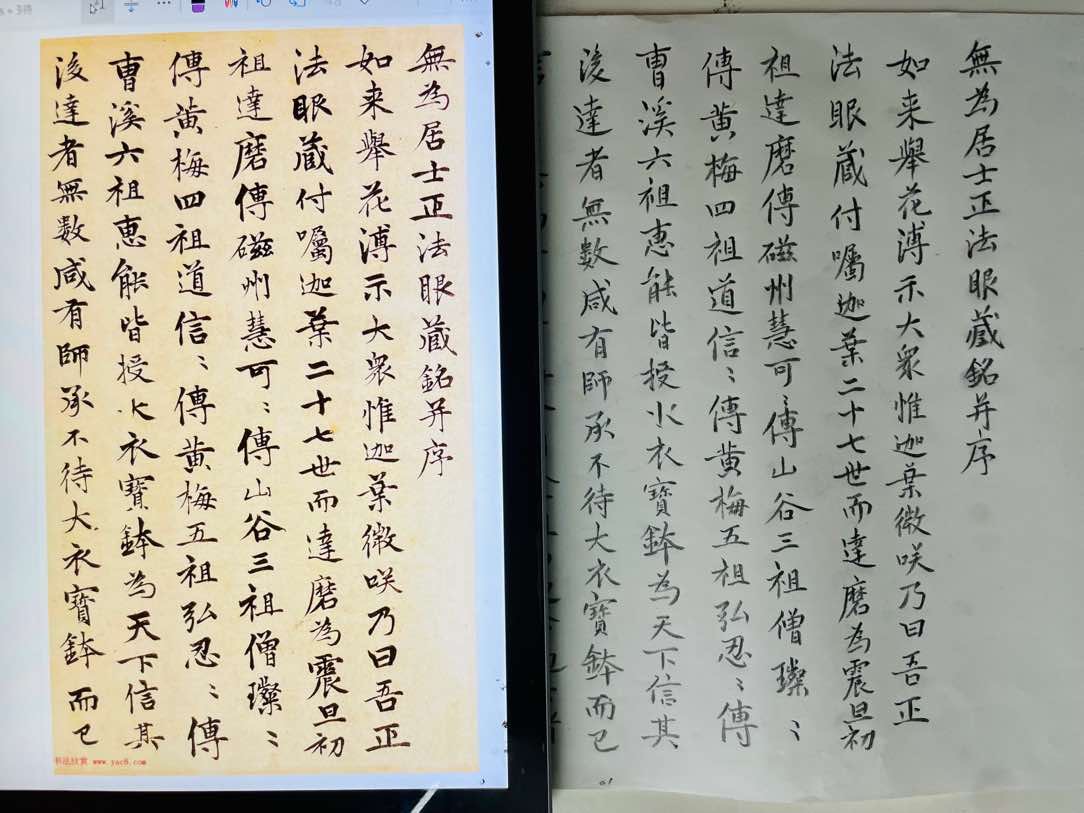 無為居士正法眼藏銘并序
如来舉花溥示大衆惟迦葉微咲乃曰吾正
法眼藏付囑迦葉二十七世而達磨為震旦初
祖達磨傳磁州慧可〻傳山谷三祖僧璨〻
傳黄梅四祖道信〻傳黄梅五祖弘忍〻傳
曹溪六祖惠能皆授大衣寶鉢為天下信其
後達者無數咸有師承不待大衣寶鉢而已
书法欣赏 www.yac8.com
無為居士正法眼藏銘并序
如来舉花溥示大衆惟迦葉微咲乃曰吾正
法眼藏付囑迦葉二十七世而達磨為震旦初
祖達磨傳磁州慧可〻傳山谷三祖僧璨〻
傳黄梅四祖道信〻傳黄梅五祖弘忍〻傳
曹溪六祖惠能皆授火衣寶鉢為天下信其
後達者無數咸有師承不待大衣寶鉢而已